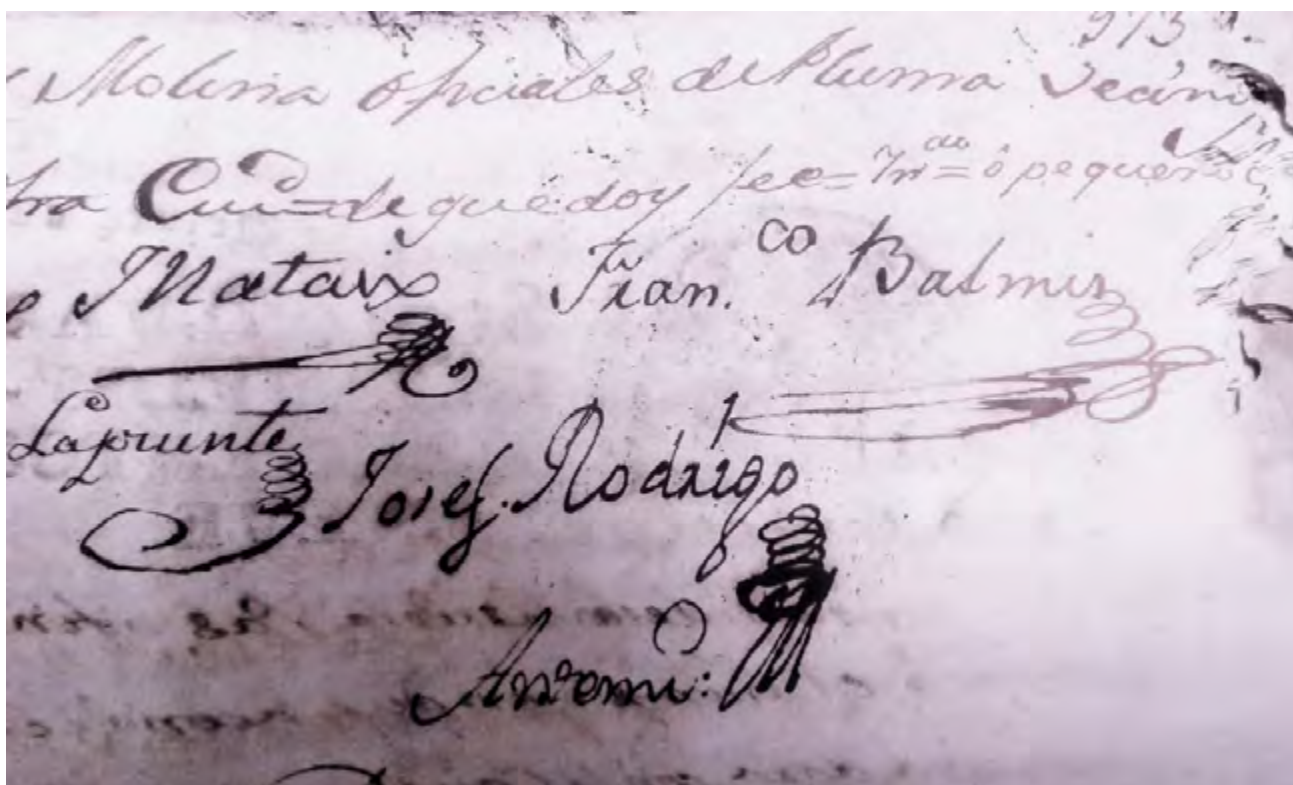 973
Molina oficiales de Pluma Vecin
tra Ciu. de que doy fee = Tr.do = ô pequeño
Mataix Fran.co Balmis
Lapuente Josef. Rodrigo
Antemi: